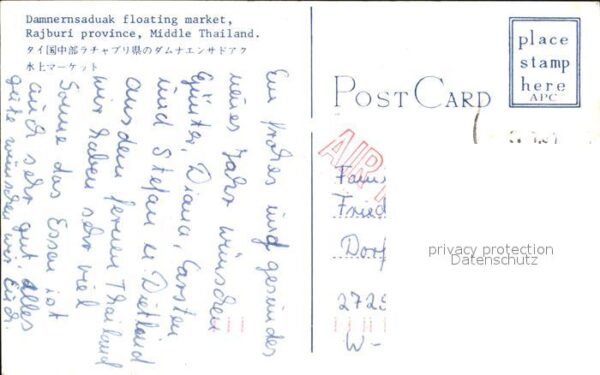 Damnernsaduak floating market,
Rajburi province, Middle Thailand.
タイ国中部ラチャブリ県のダムナエンサドアク
水上マーケット
Ein frohes und gesundes
neues Jahr wünschen
Günter, Diana, Carsten
und Stefan u. Dietlind
aus dem fernen Thailand
wir haben sehr viel
Sonne das Essen ist
auch sehr gut. alles
gute wünschen wir Euch.
POST CARD
place
stamp
here
APC
AIR
Fam
Fried
Dorf
272
W-
privacy protection
Datenschutz